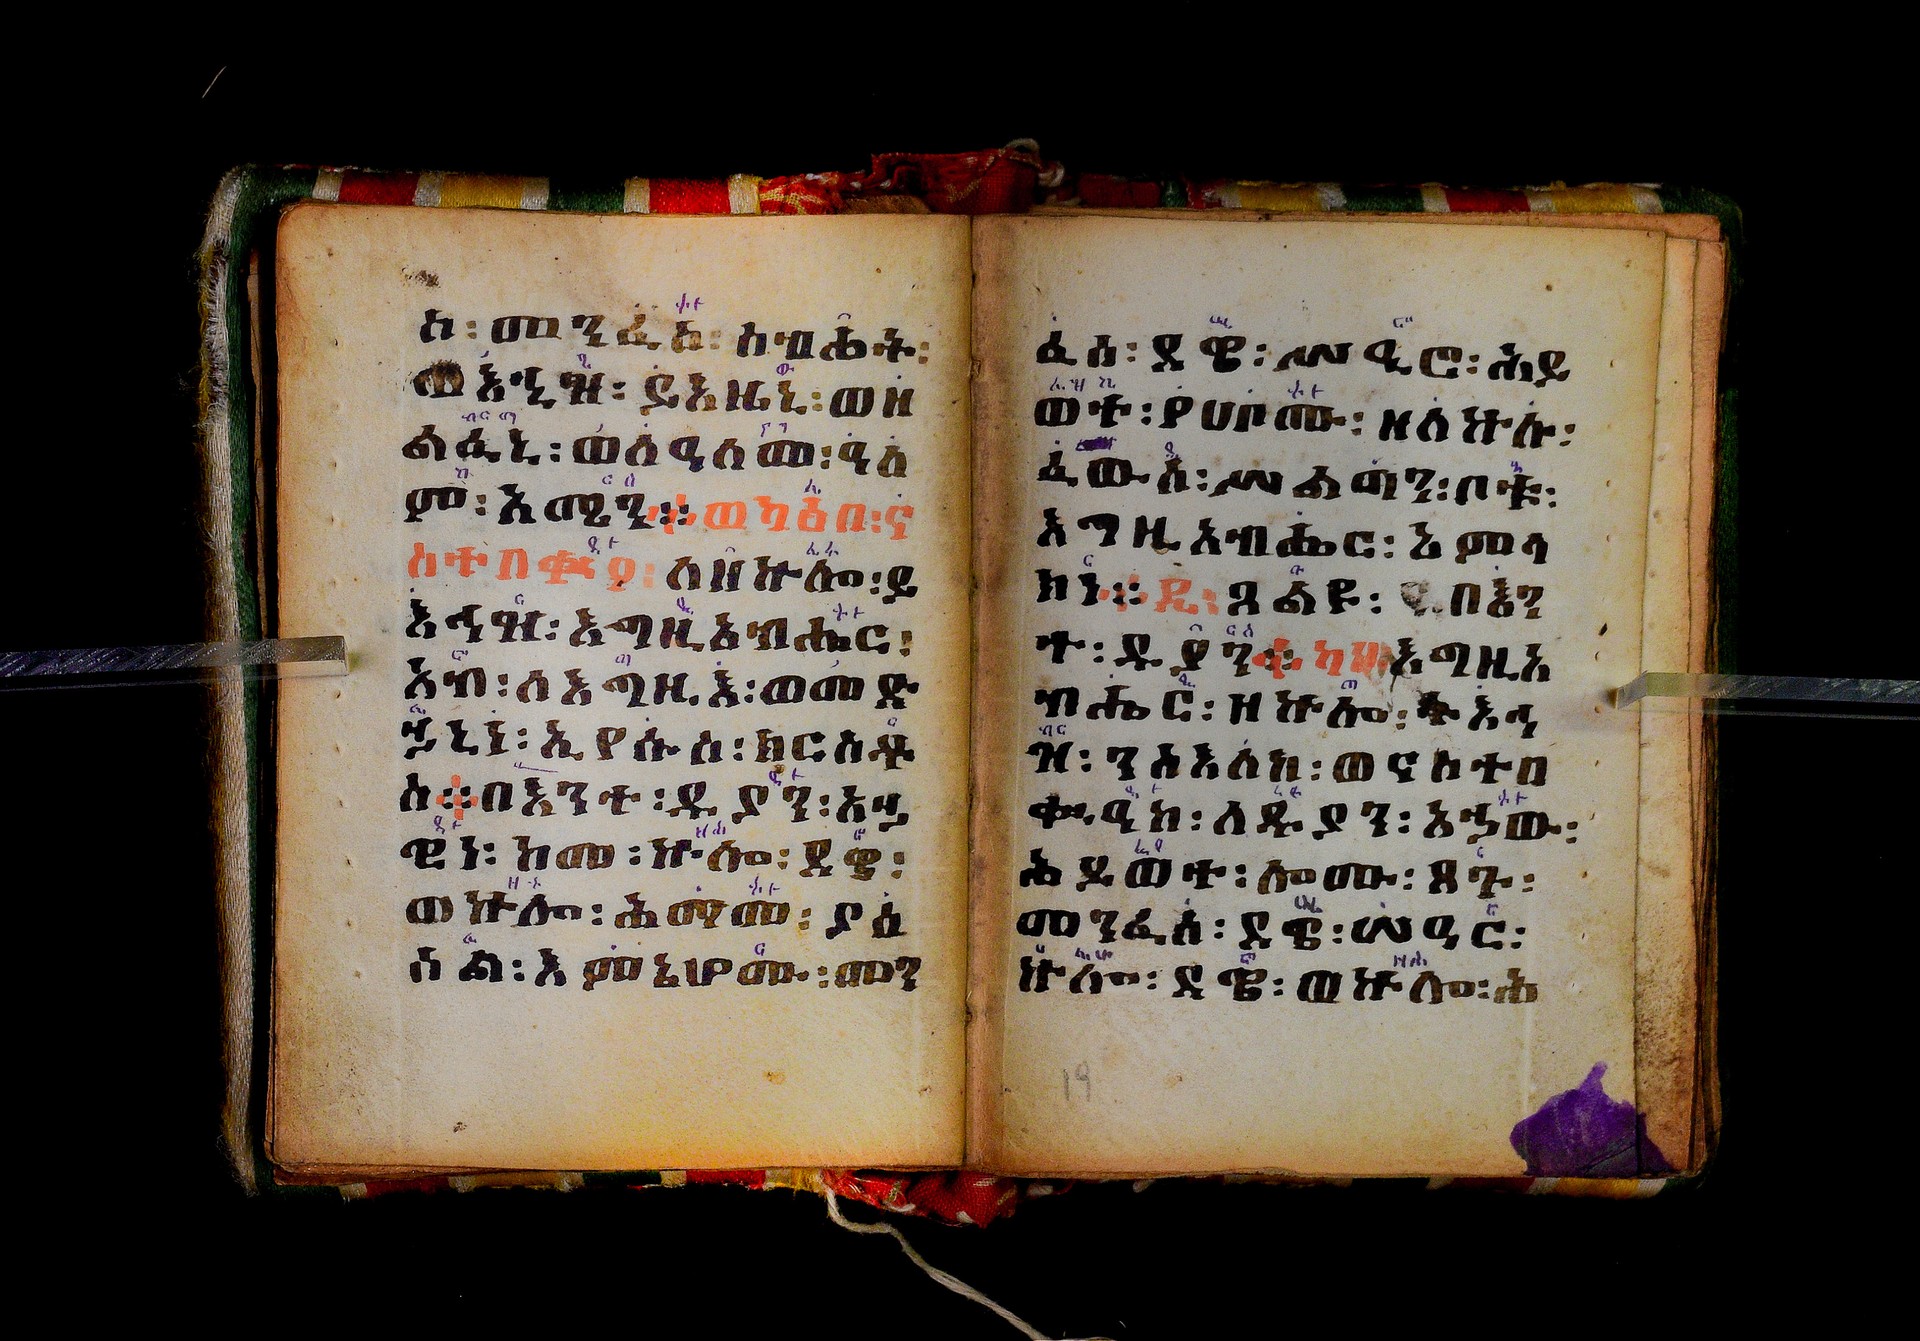 ስ፡ መንፈስ፡ ስብሐት፡
ወእኁዝ፡ ይእዜኒ፡ ወዘ
ልፈኒ፡ ወለዓለመ፡ ዓለ
ም፡ አሜን፨ ወካዕበ፡ ና
ስተበቍዖ፡ ለዘኵሎ፡ ይ
እኅዝ፡ እግዚአብሔር፡
አብ፡ ለእግዚእ፡ ወመድ
ኃኒነ፡ ኢየሱስ፡ ክርስቶ
ስ፨ በእንተ፡ ዱያን፡ አኃ
ዊነ፡ ከመ፡ ኵሎ፡ ደዌ፡
ወኵሎ፡ ሕማመ፡ ያሰ
ስል፡ እምኔሆሙ፡ መን
ፈሰ፡ ደዌ፡ ሠዒሮ፡ ሕይ
ወተ፡ የሀቦሙ፡ ዘለኵሉ፡
ፈውስ፡ ሥልጣን፡ ቦቱ፡
እግዚአብሔር፡ አምላ
ክነ፨ ዲ፡ ጸልዩ፡ በእን
ተ፡ ዱያን፨ ካህ እግዚአ
ብሔር፡ ዘኵሎ፡ ትእኅ
ዝ፡ ንስእለከ፡ ወናስተበ
ቍዓከ፡ ለዱያን፡ አኃው፡
ሕይወተ፡ ሎሙ፡ ጸጉ፡
መንፈሰ፡ ደዌ፡ ሠዓር፡
ኵሎ፡ ደዌ፡ ወኵሎ፡ ሕ
19